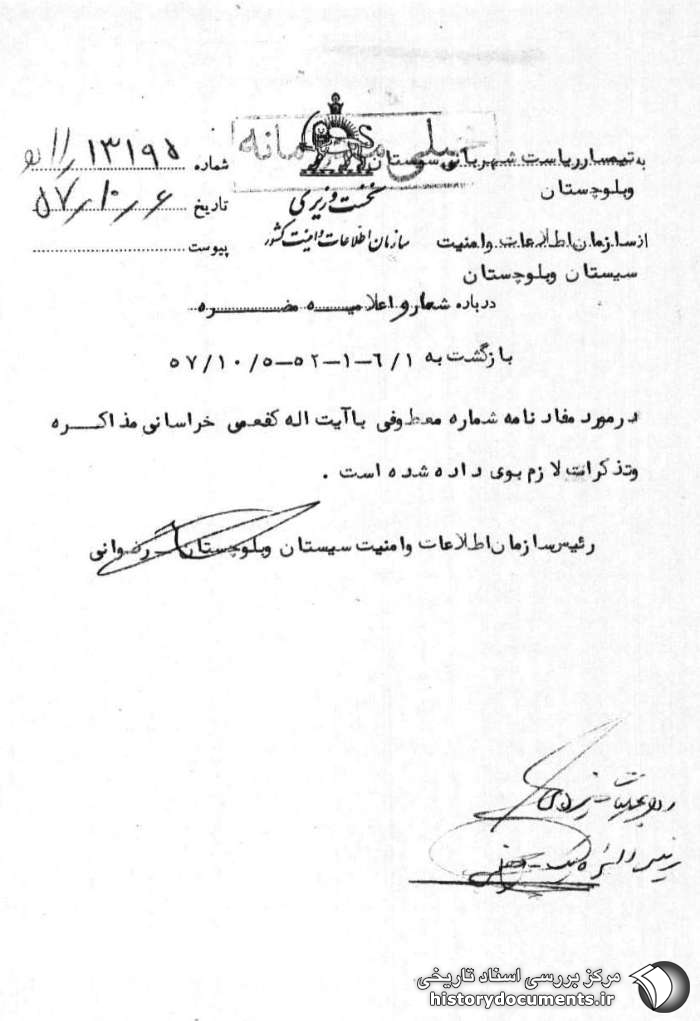 خیلی محرمانه
به تیمسار ریاست شهربانی سیستان
وبلوچستان
از سازمان اطلاعات وامنیت
سیستان وبلوچستان
درباره شعار و اعلامیه مضره
نخست وزیری
سازمان اطلاعات و امنیت کشور
شماره ۱۳۱۹۵/۱۱
تاریخ ۵۷/۱۰/۶
پیوست
بازگشت به ۶/۱-۱-۵۲-۵۷/۱۰/۵
درمورد مفاد نامه شماره معطوفی باآیت اله کفعمی خراسانی مذاکره
وتذکرات لازم بوی داده شده است .
رئیس سازمان اطلاعات وامنیت سیستان وبلوچستان رضوانی
مرکز بررسی اسناد تاریخی
historydocuments.ir